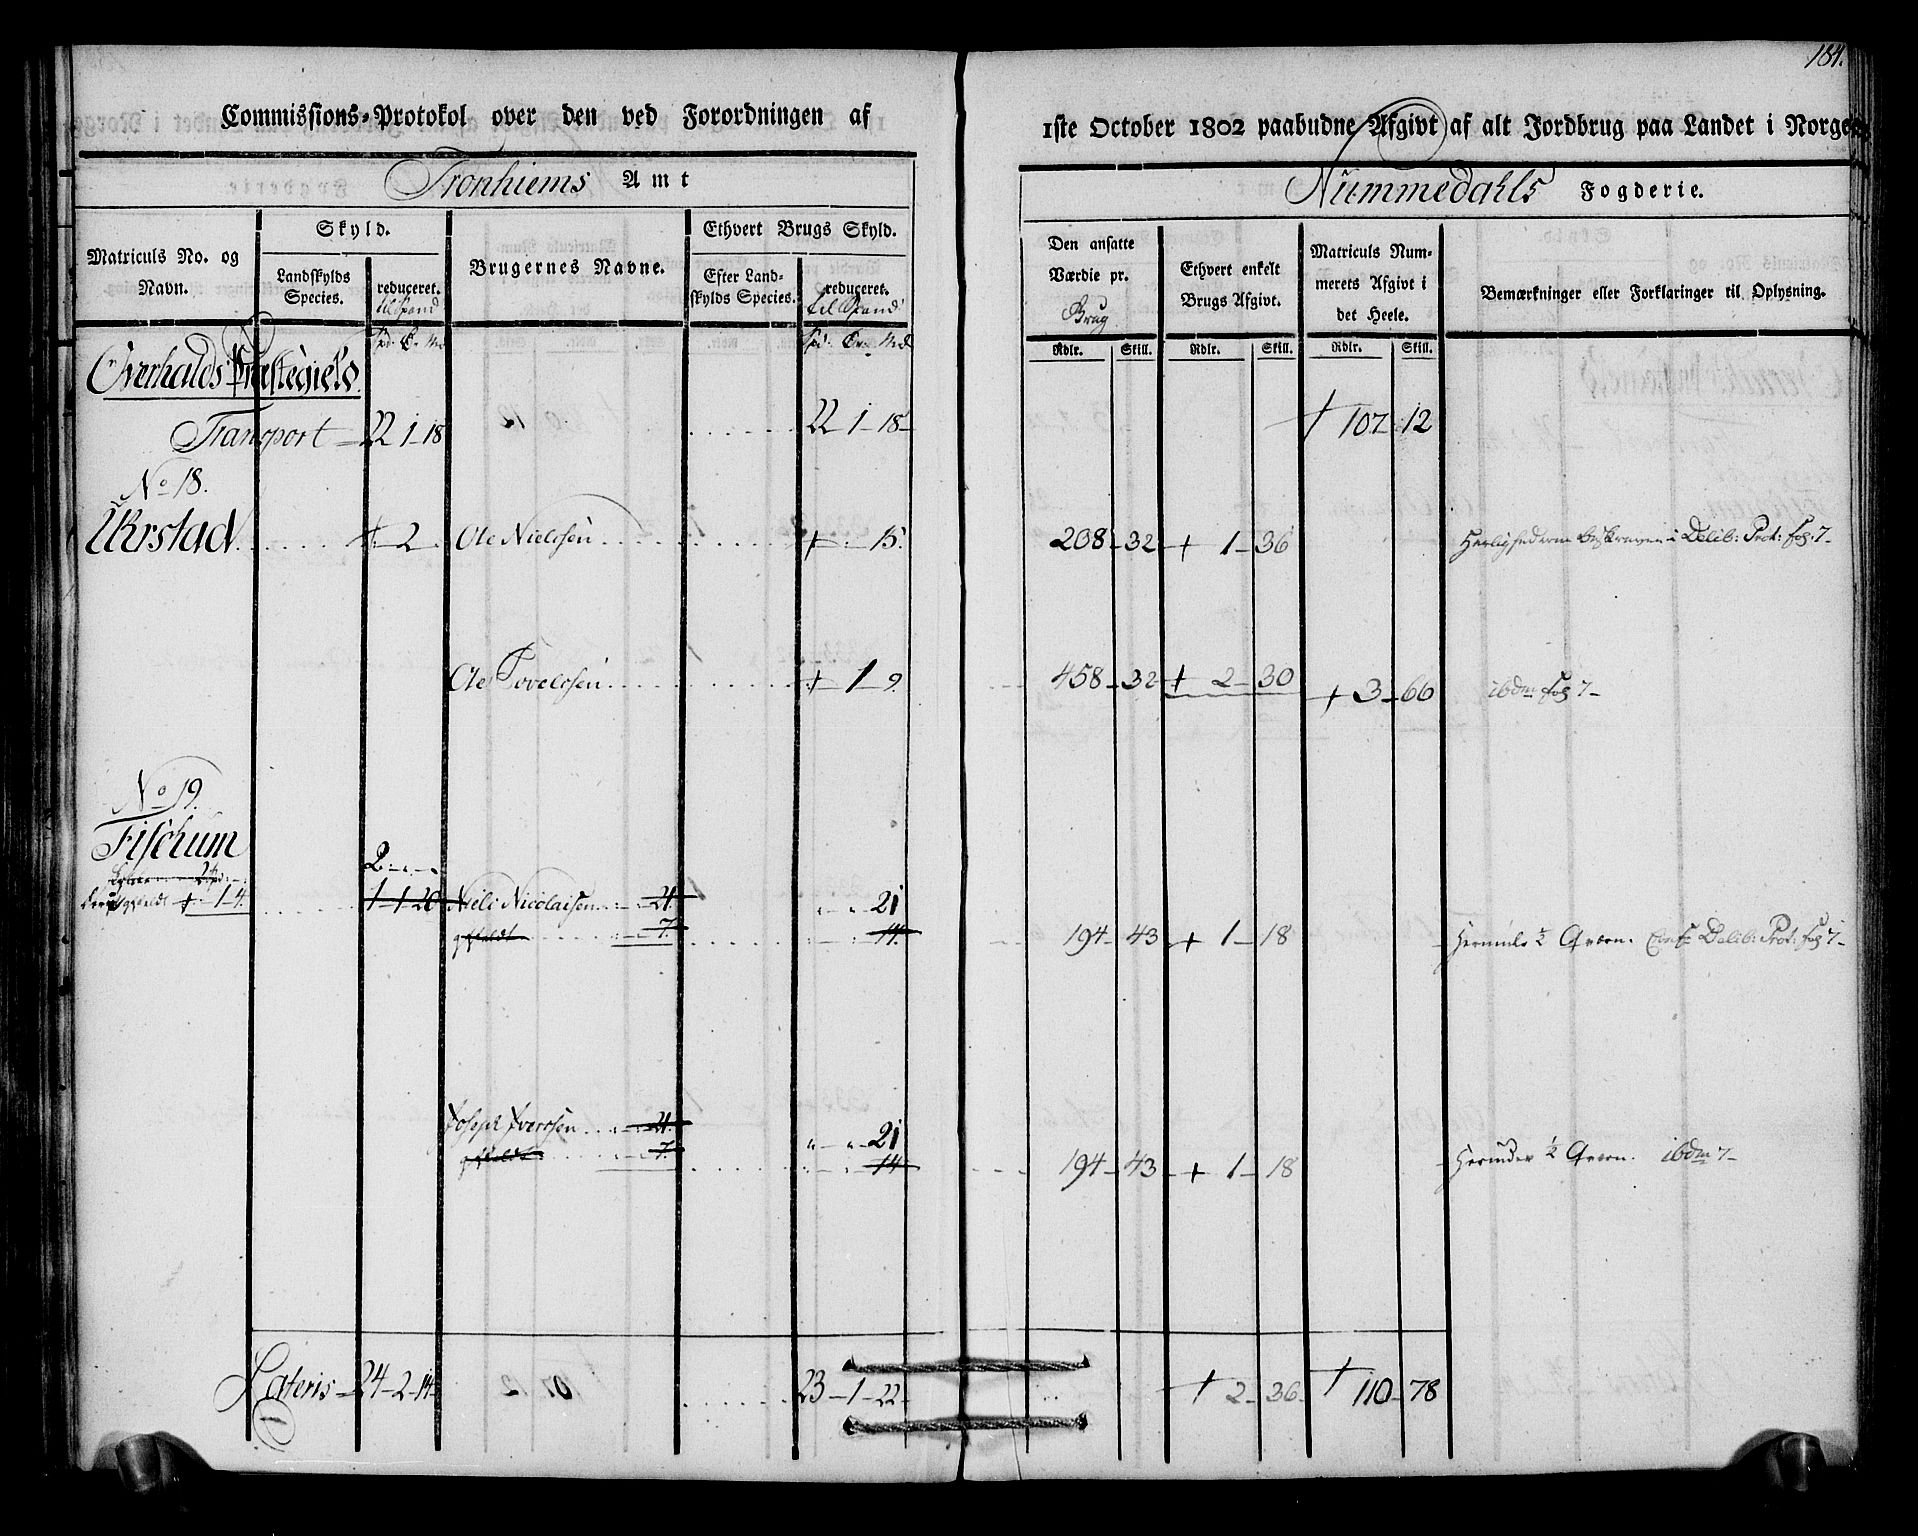 184.
Commissions-Protokol over den ved Forordningen af
1ste October 1802 paabudne Afgivt af alt Jordbrug paa Landet i Norge
Tronhiems Amt
Nummedahls Fogderie.
Matriculs No. og Navn.
Skyld.
Landskylds Species.
reduceret.
til Spand
Brugernes Navne.
Ethvert Brugs Skyld.
Efter Landskylds Species.
reduceret.
til Spand
Den ansatte Værdie pr.
Brug
Ethvert enkelt Brugs Afgivt.
Matriculs Nummerets Afgivt i det Heele.
Bemærkninger eller Forklaringer til Oplysning.
Rdlr. Skill. Rdlr. Skill. Rdlr. Skill.
Overhalds Præstegield.
Transport 22 1 18 22 1 18 107 12
No 18.
Ørstad 2 Ole Nielssen 15. 208 32 1 36 Delib: Prot: fol: 7
Ole Tovelssen 1 9 458 32 2 30 3 66 ibdm fol 7
No 19.
Fischum
2
1 4. 1 1 20 Niels Nicolaisen 21
7. 14. 194 43 1 18 ½ Qværn. Delib: Prot: fol 7
Joseph Iverssen 21. 21
7. 14 194 43 1 18 ½ Qværn. ibdm 7
Lateris 24 2 14 23 1 22 2 36 110 78